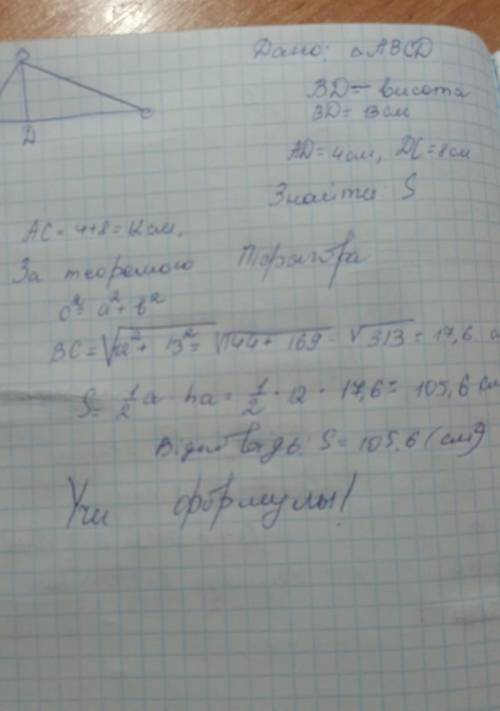 B
C
D
Дано: △ABCD
BD – висота
BD = 13 см
AD = 4 см, DC = 8 см
Знайти S
AC = 4+8 = 12 см.
За теоремою Піфагора
c² = a² + b²
BC = √12² + 13² = √144 + 169 = √313 = 17,6 см
S = 1/2 a · ha = 1/2 · 12 · 17,6 = 105,6 см
Відповідь: S = 105,6 (см²)
Учи формулы!